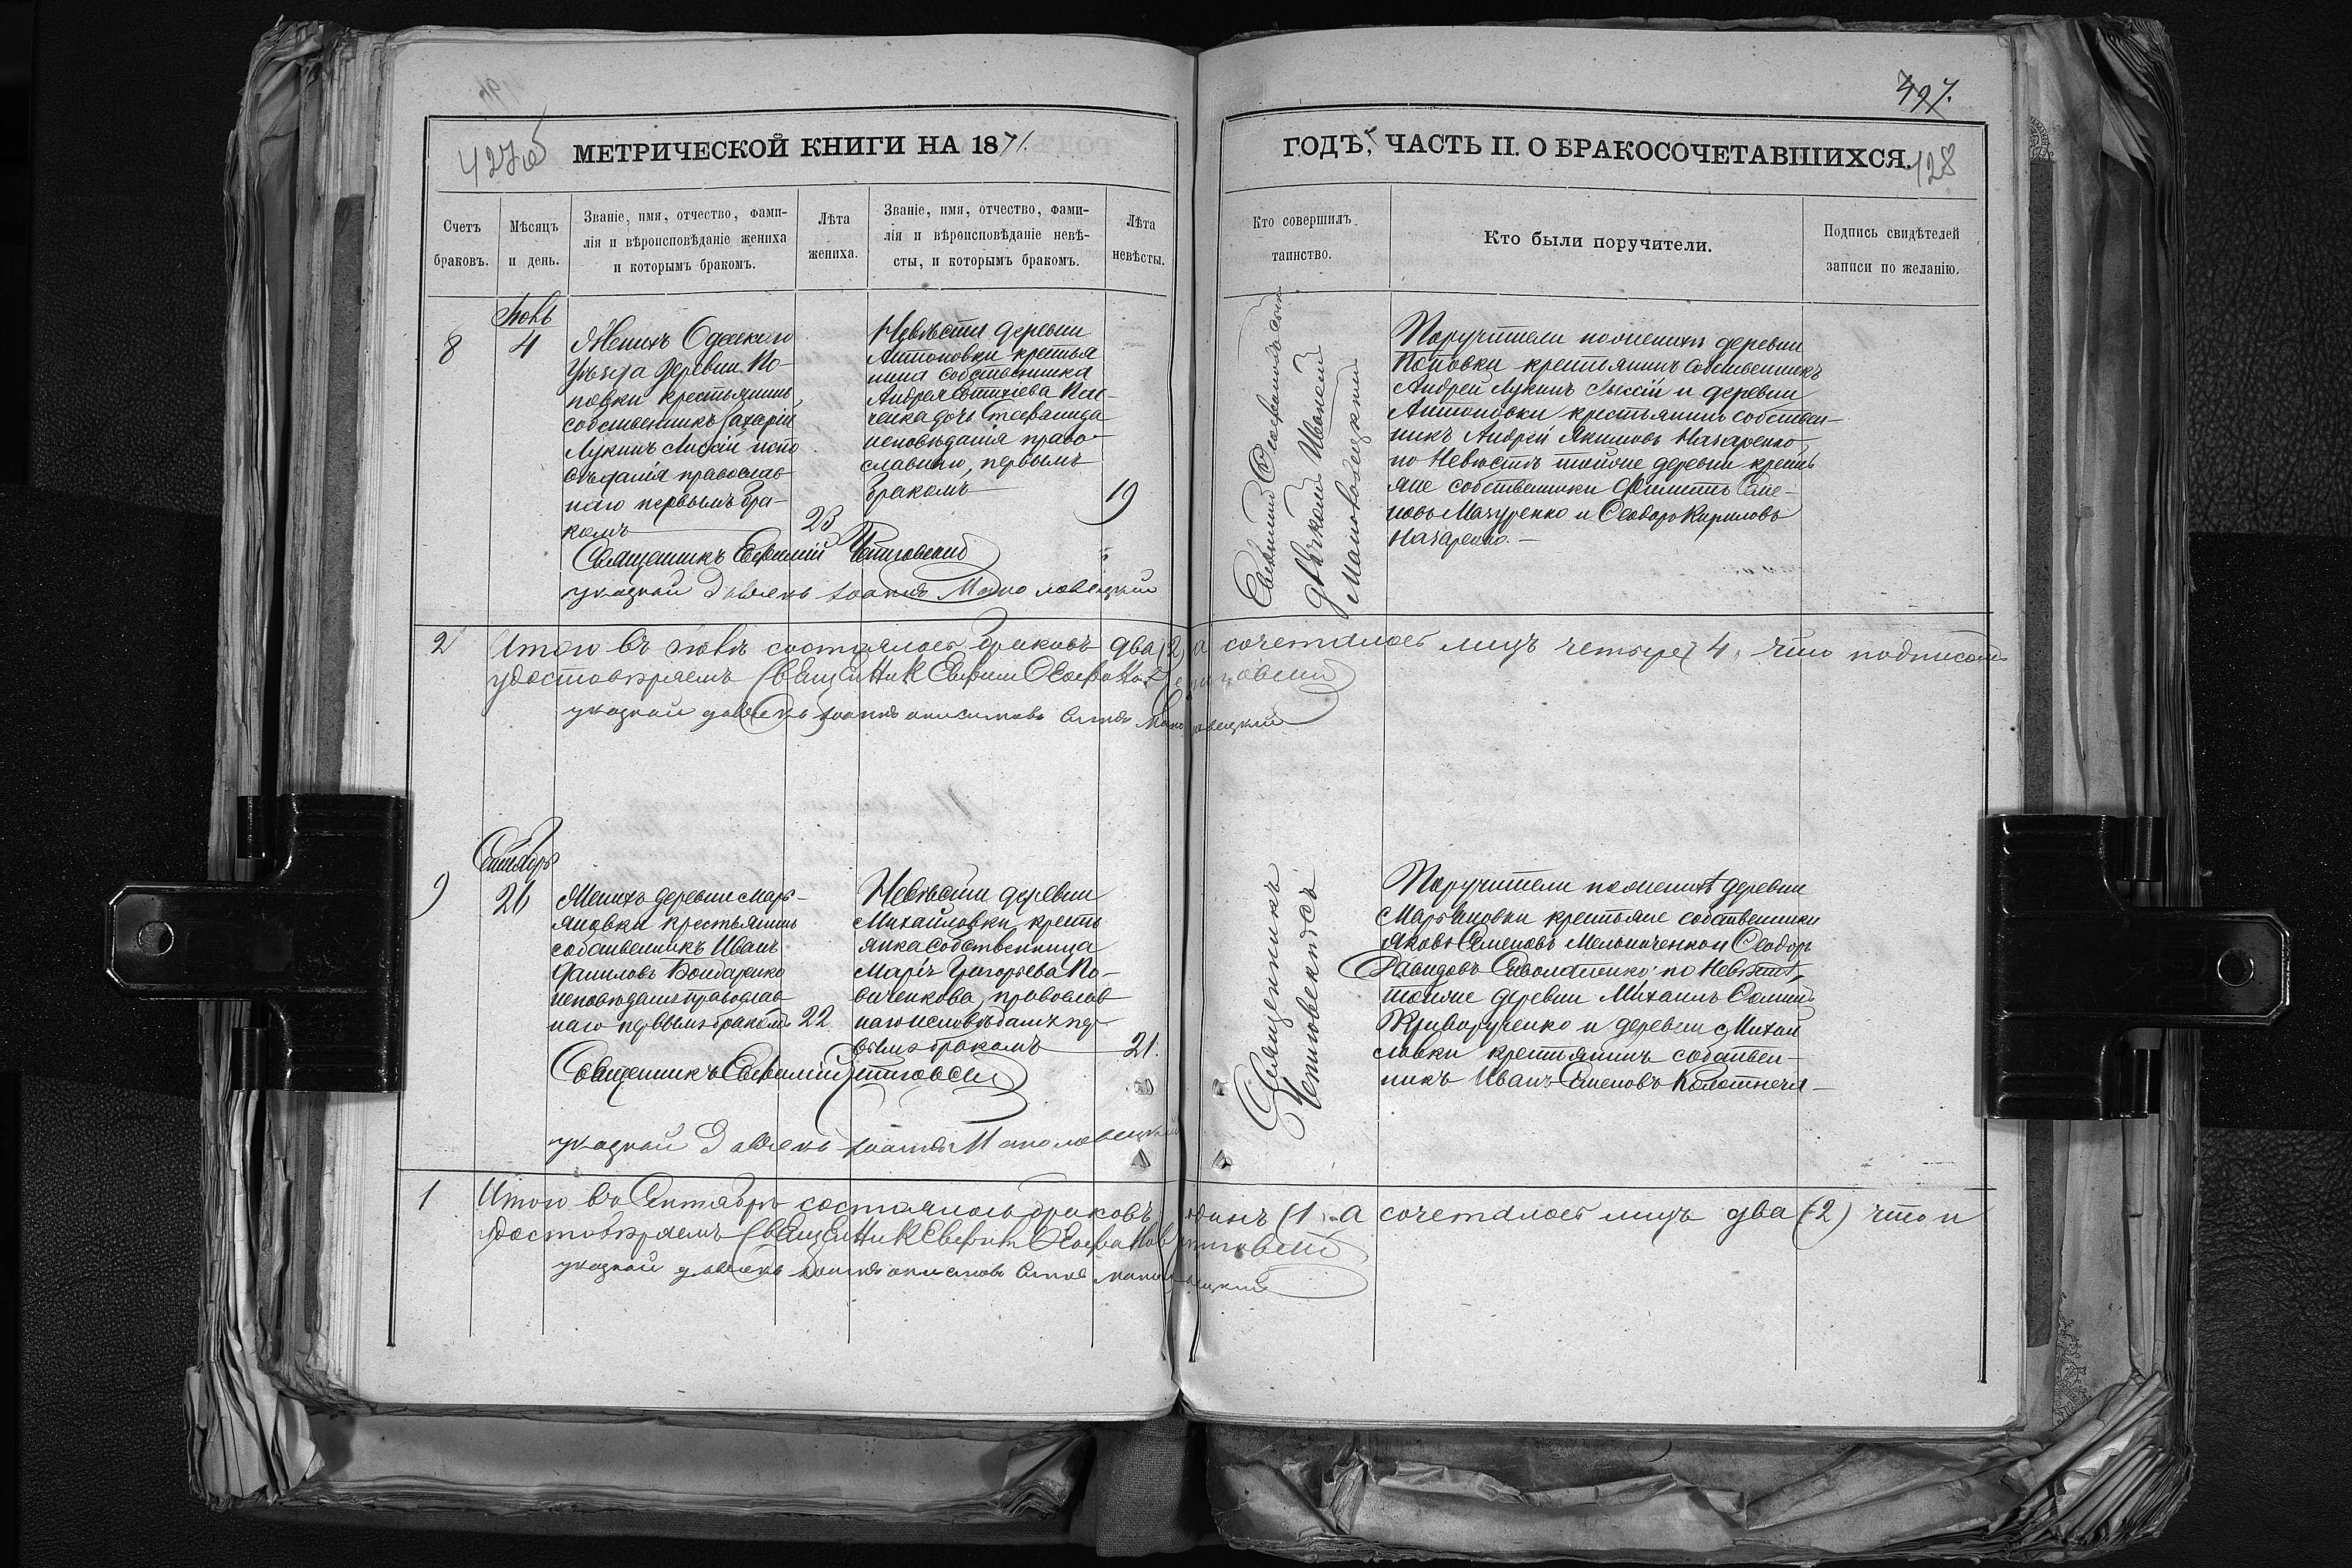 497.
427об
МЕТРИЧЕСКОЙ КНИГИ НА 1871.
ГОДЪ, ЧАСТЬ II. О БРАКОСОЧЕТАВШИХСЯ.
428
Счетъ браковъ.
Мѣсяцъ и день.
Званіе, имя, отчество, фами-
лія и вѣроисповѣданіе жениха
и которымъ бракомъ.
Лѣта жениха.
Званіе, имя, отчество, фами-
лія и вѣроисповѣданіе невѣ-
сты, и которымъ бракомъ.
Лѣта невѣсты.
Кто совершилъ
таинство.
Кто были поручители.
Подпись свидѣтелей
записи по желанію.
8
4
Женихъ Одескаго
Уѣзда деревни По-
повки крестьянинъ
собственникъ Захарій
Лукинъ Лисій испо
вѣданія православ
наго первымъ бра-
комъ
23
Невѣста деревни
Антоновки крестья
нина собственника
Андрея
ченка дочь Стефанида
исповѣданія право-
славнаго, первымъ
бракомъ
19
Священникъ Евфимій
указной Дьячекъ Іоаннъ
Евфимій
дьячкомъ
Поручители по женихѣ деревни
Поповки крестьянинъ собственникъ
Андрей Лукинъ Лысій и деревни
Антоновки крестьянинъ собствен-
никъ Андрей Якимовъ Назаренко
по Невѣстѣ тойже деревни кресть
яне собственники Филиппъ Семе-
новъ Мазуренко и Ѳеодоръ Кириловъ
Назаренко.—
2
Итого въ состоялось браковъ два (2) а сочеталось лицъ четыре 4, что подписомъ
удостовѣряемъ Священник Евфимий
указной дьячекъ Іоаннъ
Сентябръ
9
26
Женихъ деревни Марь-
яновки крестьянинъ
собственникъ Иванъ
Даниловъ Бондаренко
исповѣданія православ
наго первымъ бракомъ
22
Невѣста деревни
Михайловки кресть
янка собственница
Марія Григорьева По-
виченкова, православ
наго исповѣданія пер
вымъ бракомъ
21.
Священникъ Евфимій
указной Дьячекъ Іоаннъ
Священникъ
Поручители по женихѣ деревни
Марьяновки крестьяне собственники
Яковъ Семеновъ Мельниченко и Ѳеодоръ
Давидовъ по Невѣстѣ,
тойже деревни Михаилъ
Криворученко и деревни Михай
ловки крестьянинъ собствен-
никъ Иванъ Семеновъ
1
Итого въ Сентябрѣ состоялось браковъ одинъ (1) а сочеталось лицъ два (2) что и
удостовѣряемъ Священник Евфимій
указной дьячекъ Іоаннъ